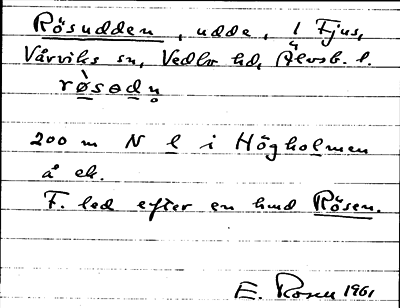 Rösudden, udde, 1 Fjus,
Vårviks sn, Vedbo hd, Älvsb. l.
rø̀sədṇ
200 m N l i Högholmen
å ek.
F. led efter en hund Rösen.
E. Rosen 1961